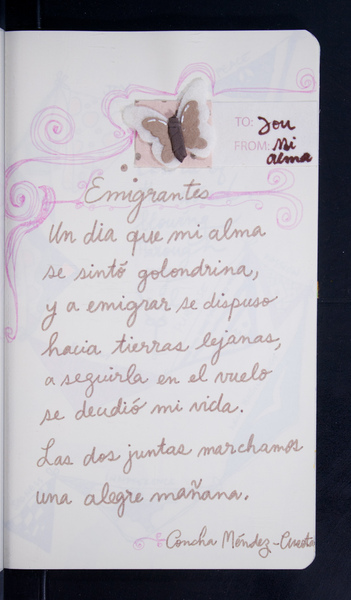 TO: You
FROM: Mi
alma
Emigrantes
Un dia que mi alma
se sintó golondrina,
y a emigrar se dispuso
hacia tierras lejanas,
a seguirla en el vuelo
se decidió mi vida.
Las dos juntas marchamos
una alegre mañana.
Concha Méndez-Cuesta